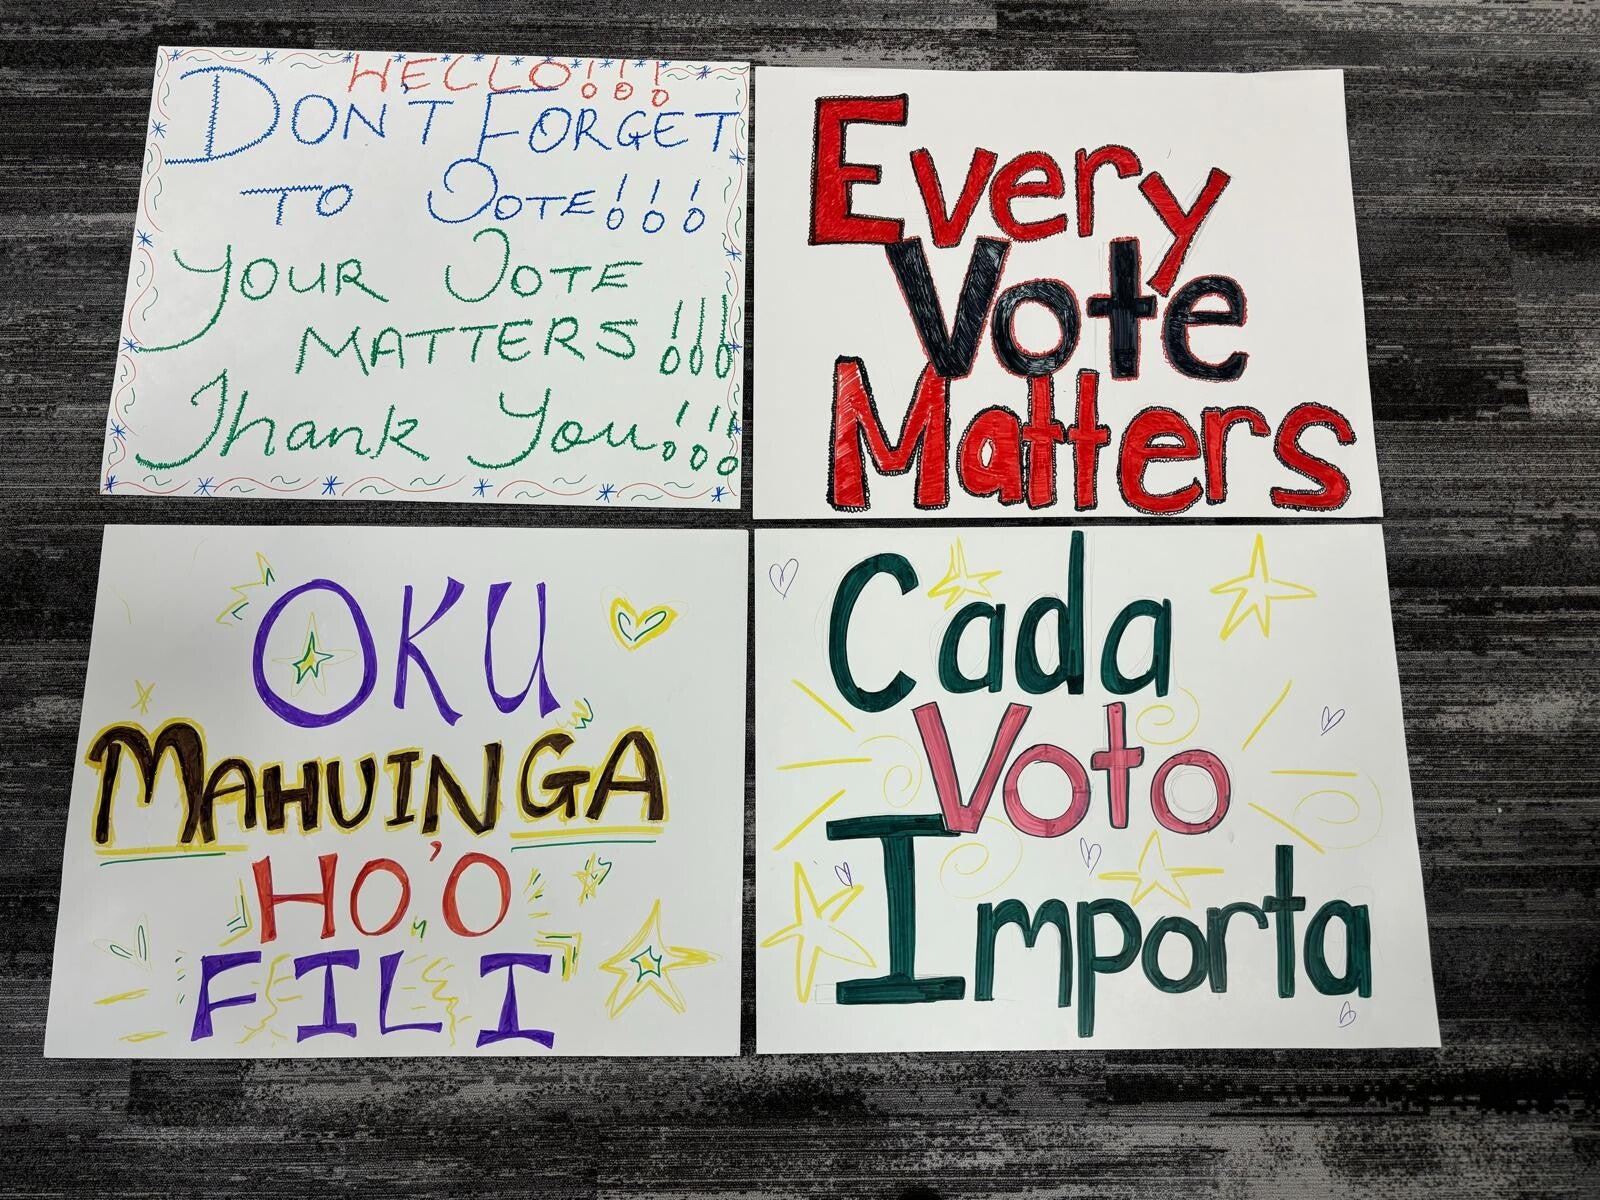 HELLO!!!
DON'T FORGET
TO VOTE!!!
YOUR VOTE
MATTERS!!!
Thank You!!!
Every
Vote
Matters
OKU
MAHUINGA
HO'O
FILI
Cada
Voto
Importa